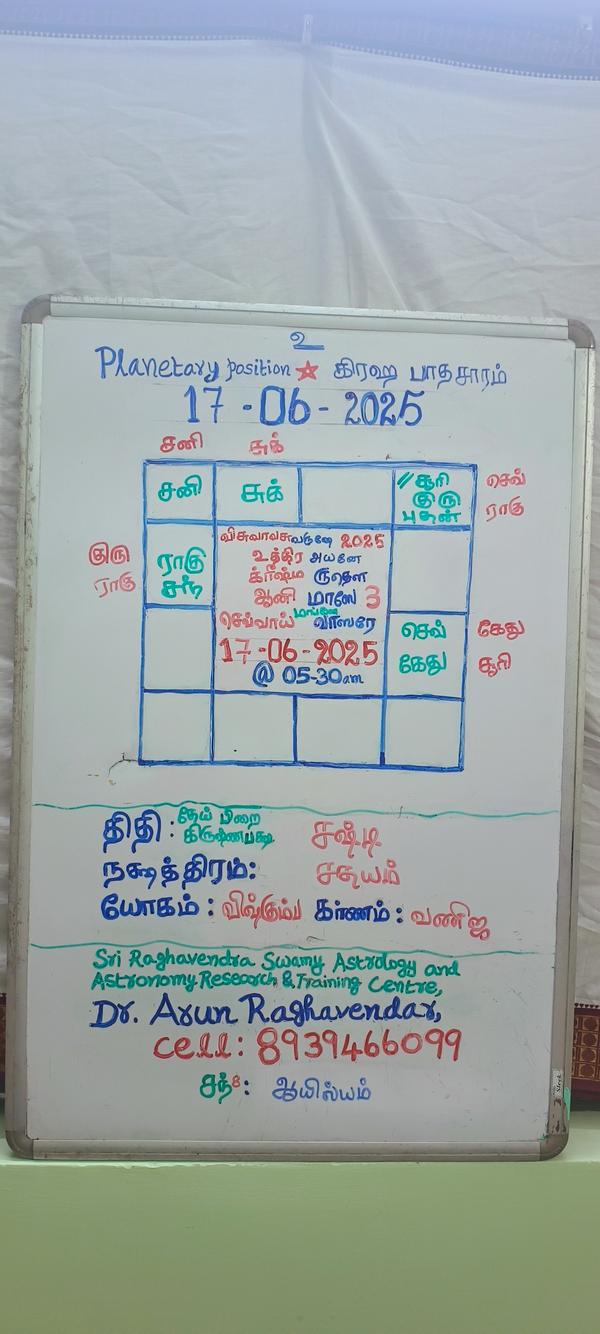 உ
Planetary position ☆ கிரஹ பாதசாரம்
17-06-2025
சனி சுக்
சனி சுக் // சூரி செவ்
குரு ராகு
புதன்
குரு ராகு
ராகு சந்
விசுவாவசுவருஷே 2025
உத்திர அயனே
க்ரீஷ்ம ருதௌ
ஆனி மாஸே 3
செவ்வாய் வாஸரே
17-06-2025
@ 05-30am
செவ் கேது
கேது சூரி
திதி : தேய் பிறை சஷ்டி
கிருஷ்ணபக்ஷ
நக்ஷத்திரம்: சதயம்
யோகம் : விஷ்கும்ப கர்ணம் : வணிஜ
Sri Raghavendra Swamy Astrology and
Astronomy Research & Training Centre,
Dr. Arun Raghavendar,
cell: 8939466099
சந்8: ஆயில்யம்